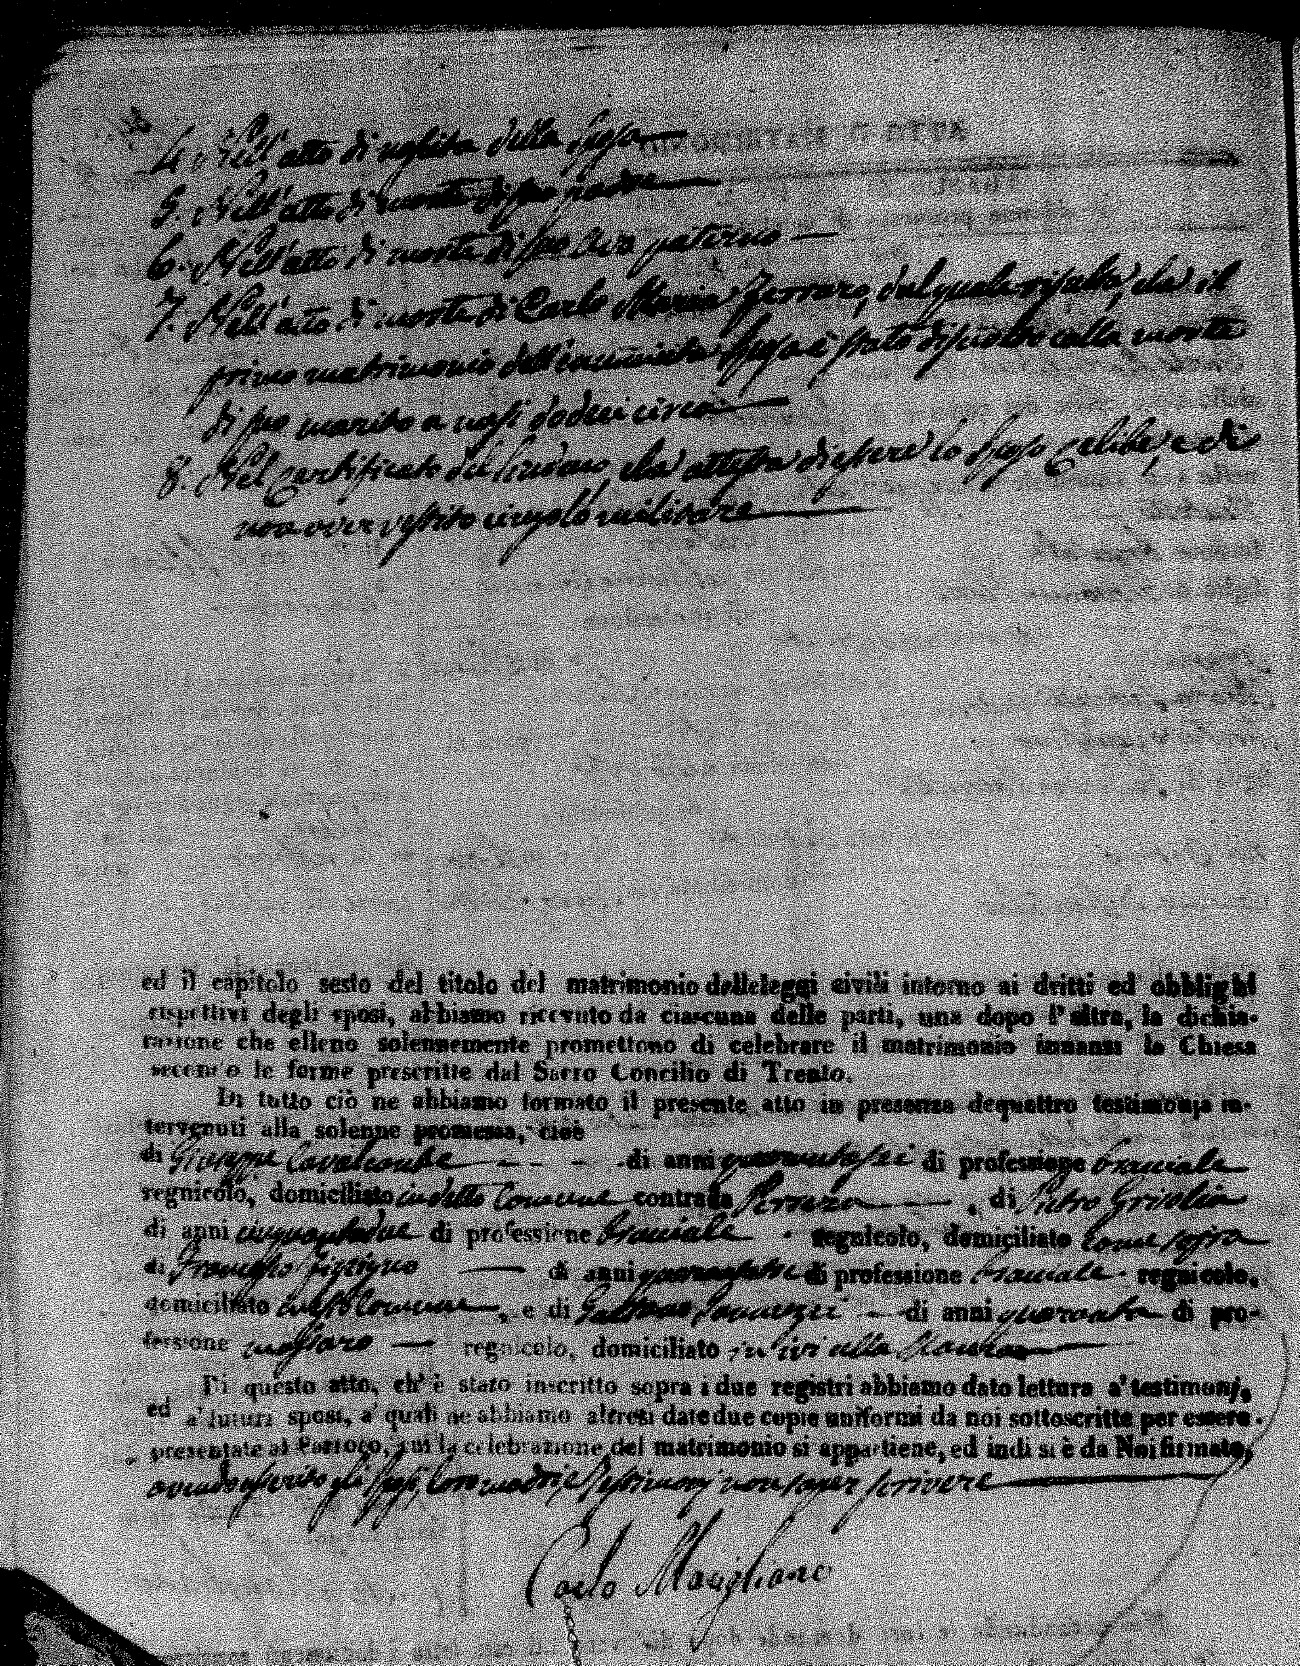 4. Nell'atto di nascita della sposa
5. Nell'atto di morte di suo padre
6. Nell'atto di morte di suo Avo paterno
7. Nell'atto di morte di Carlo Maria Ferraro, dal quale risulta, che il
primo matrimonio dell'enunciata sposa è stato disciolto colla morte
di suo marito a mesi dodeci circa
8. Nel certificato del Sindaco che attesta di essere lo sposo celibe, e di
non aver vestito cingolo militare
ed il capitolo sesto del titolo del matrimonio delleleggi civili intorno ai dritti ed obblighi
rispettivi degli sposi, abbiamo ricevuto da ciascuna delle parti, una dopo l'altra, la dichia-
razione che elleno solennemente promettono di celebrare il matrimonio innanzi la Chiesa
secondo le forme prescritte dal Sacro Concilio di Trento.
Di tutto ciò ne abbiamo formato il presente atto in presenza dequattro testimonj in-
tervenuti alla solenne promessa, cioè
di Giuseppe Cavalcante di anni di professione bracciale
regnicolo, domiciliato in detto Comune contrada di Pietro
di anni cinquantadue di professione bracciale regnicolo, domiciliato come sopra
di Francesco di anni di professione bracciale regnicolo,
domiciliato Comune, e di Gaetano di anni quaranta di pro-
fessione massaro regnicolo, domiciliato
Di questo atto, ch'è stato inscritto sopra i due registri abbiamo dato lettura a' testimonj,
ed a' futuri sposi, a' quali ne abbiamo altresì date due copie uniformi da noi sottoscritte per essere
presentate al Parroco, cui la celebrazione del matrimonio si appartiene, ed indi si è da Noi firmato,
avendo asserito gli sposi, loro madri e testimonj non saper scrivere
Carlo Magliano